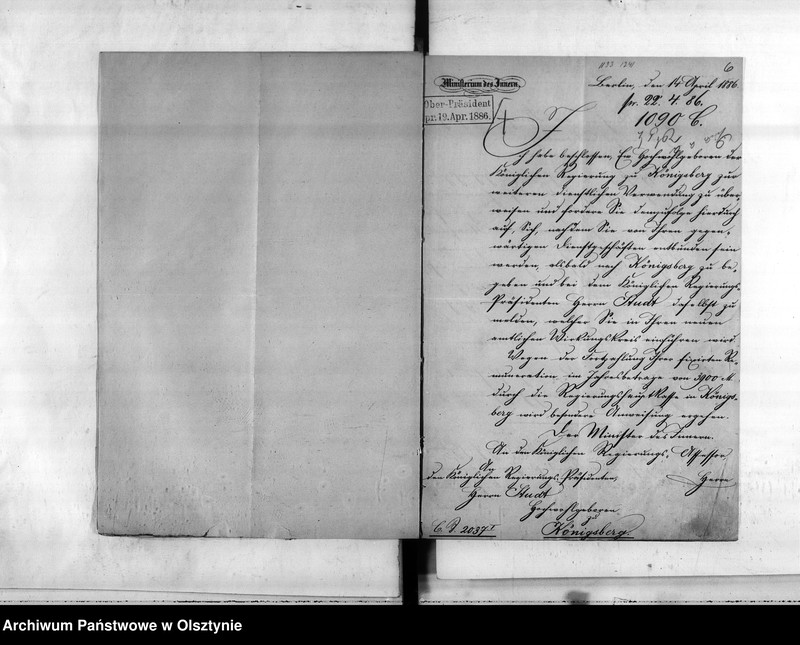 6
1193 1241
Ministerium des Innern.
Berlin, den 14 April 1886.
pr. 22. 4. 86.
Ober-Präsident
pr. 19. Apr. 1886.
1090 C.
Ich habe beschlossen, Ew Hochwohlgeboren der
Königlichen Regierung zu Königsberg zur
weiteren dienstlichen Verwendung zu über,
weisen und fordere Sie demzufolge hierdurch
auf, Sich, nachdem Sie von Ihren gegen,
wärtigen Dienstgeschäften entbunden sein
werden, alsbald nach Königsberg zu be,
geben und bei dem Königlichen Regierungs,
Präsidenten Herrn Studt daselbst zu
melden, welcher Sie in Ihren neuen
amtlichen Wirkungskreis einführen wird.
Wegen der Fortzahlung Ihrer fixirten Re,
muneration im Jahresbetrage von 3900 M
durch die Regierungshauptkasse in Königs,
berg wird besondere Anweisung ergehen.
Der Minister des Innern.
An den Königlichen Regierungs, Assessor
Herrn
An
den Königlichen Regierungs, Präsidenten,
Herrn Studt
Hochwohlgeboren
zu
Königsberg.
2037 I
Archiwum Państwowe w Olsztynie